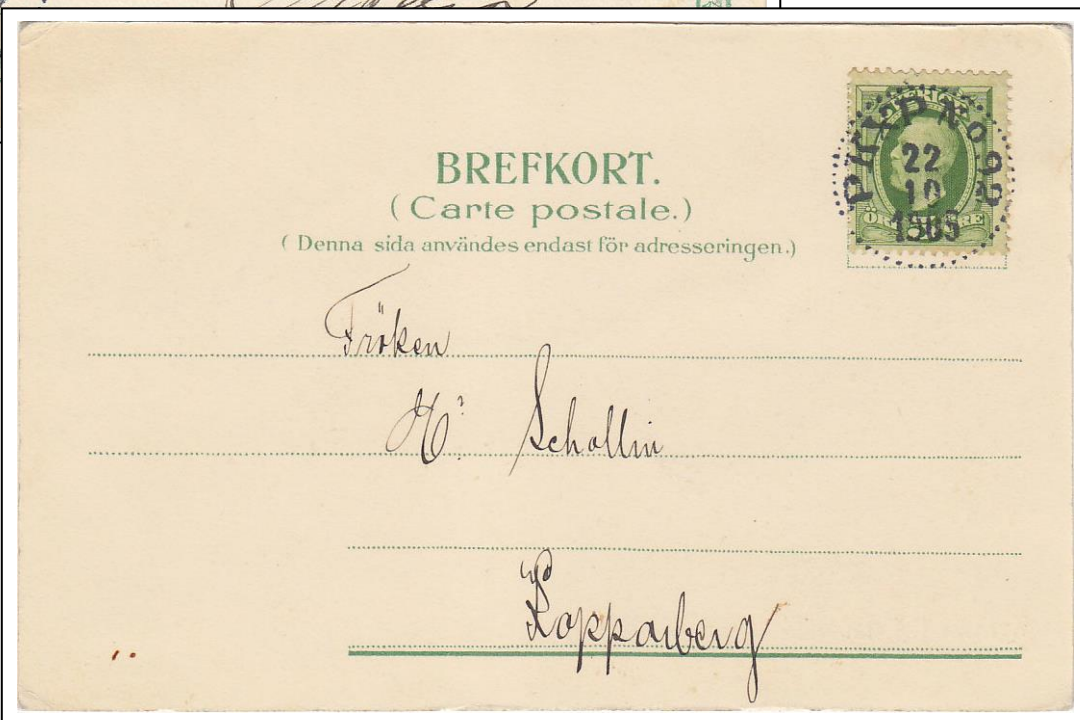 BREFKORT.
(Carte postale.)
(Denna sida användes endast för adresseringen.)
PKXP No 92
22
10
1905
Fröken
H. Schollin
Kopparberg